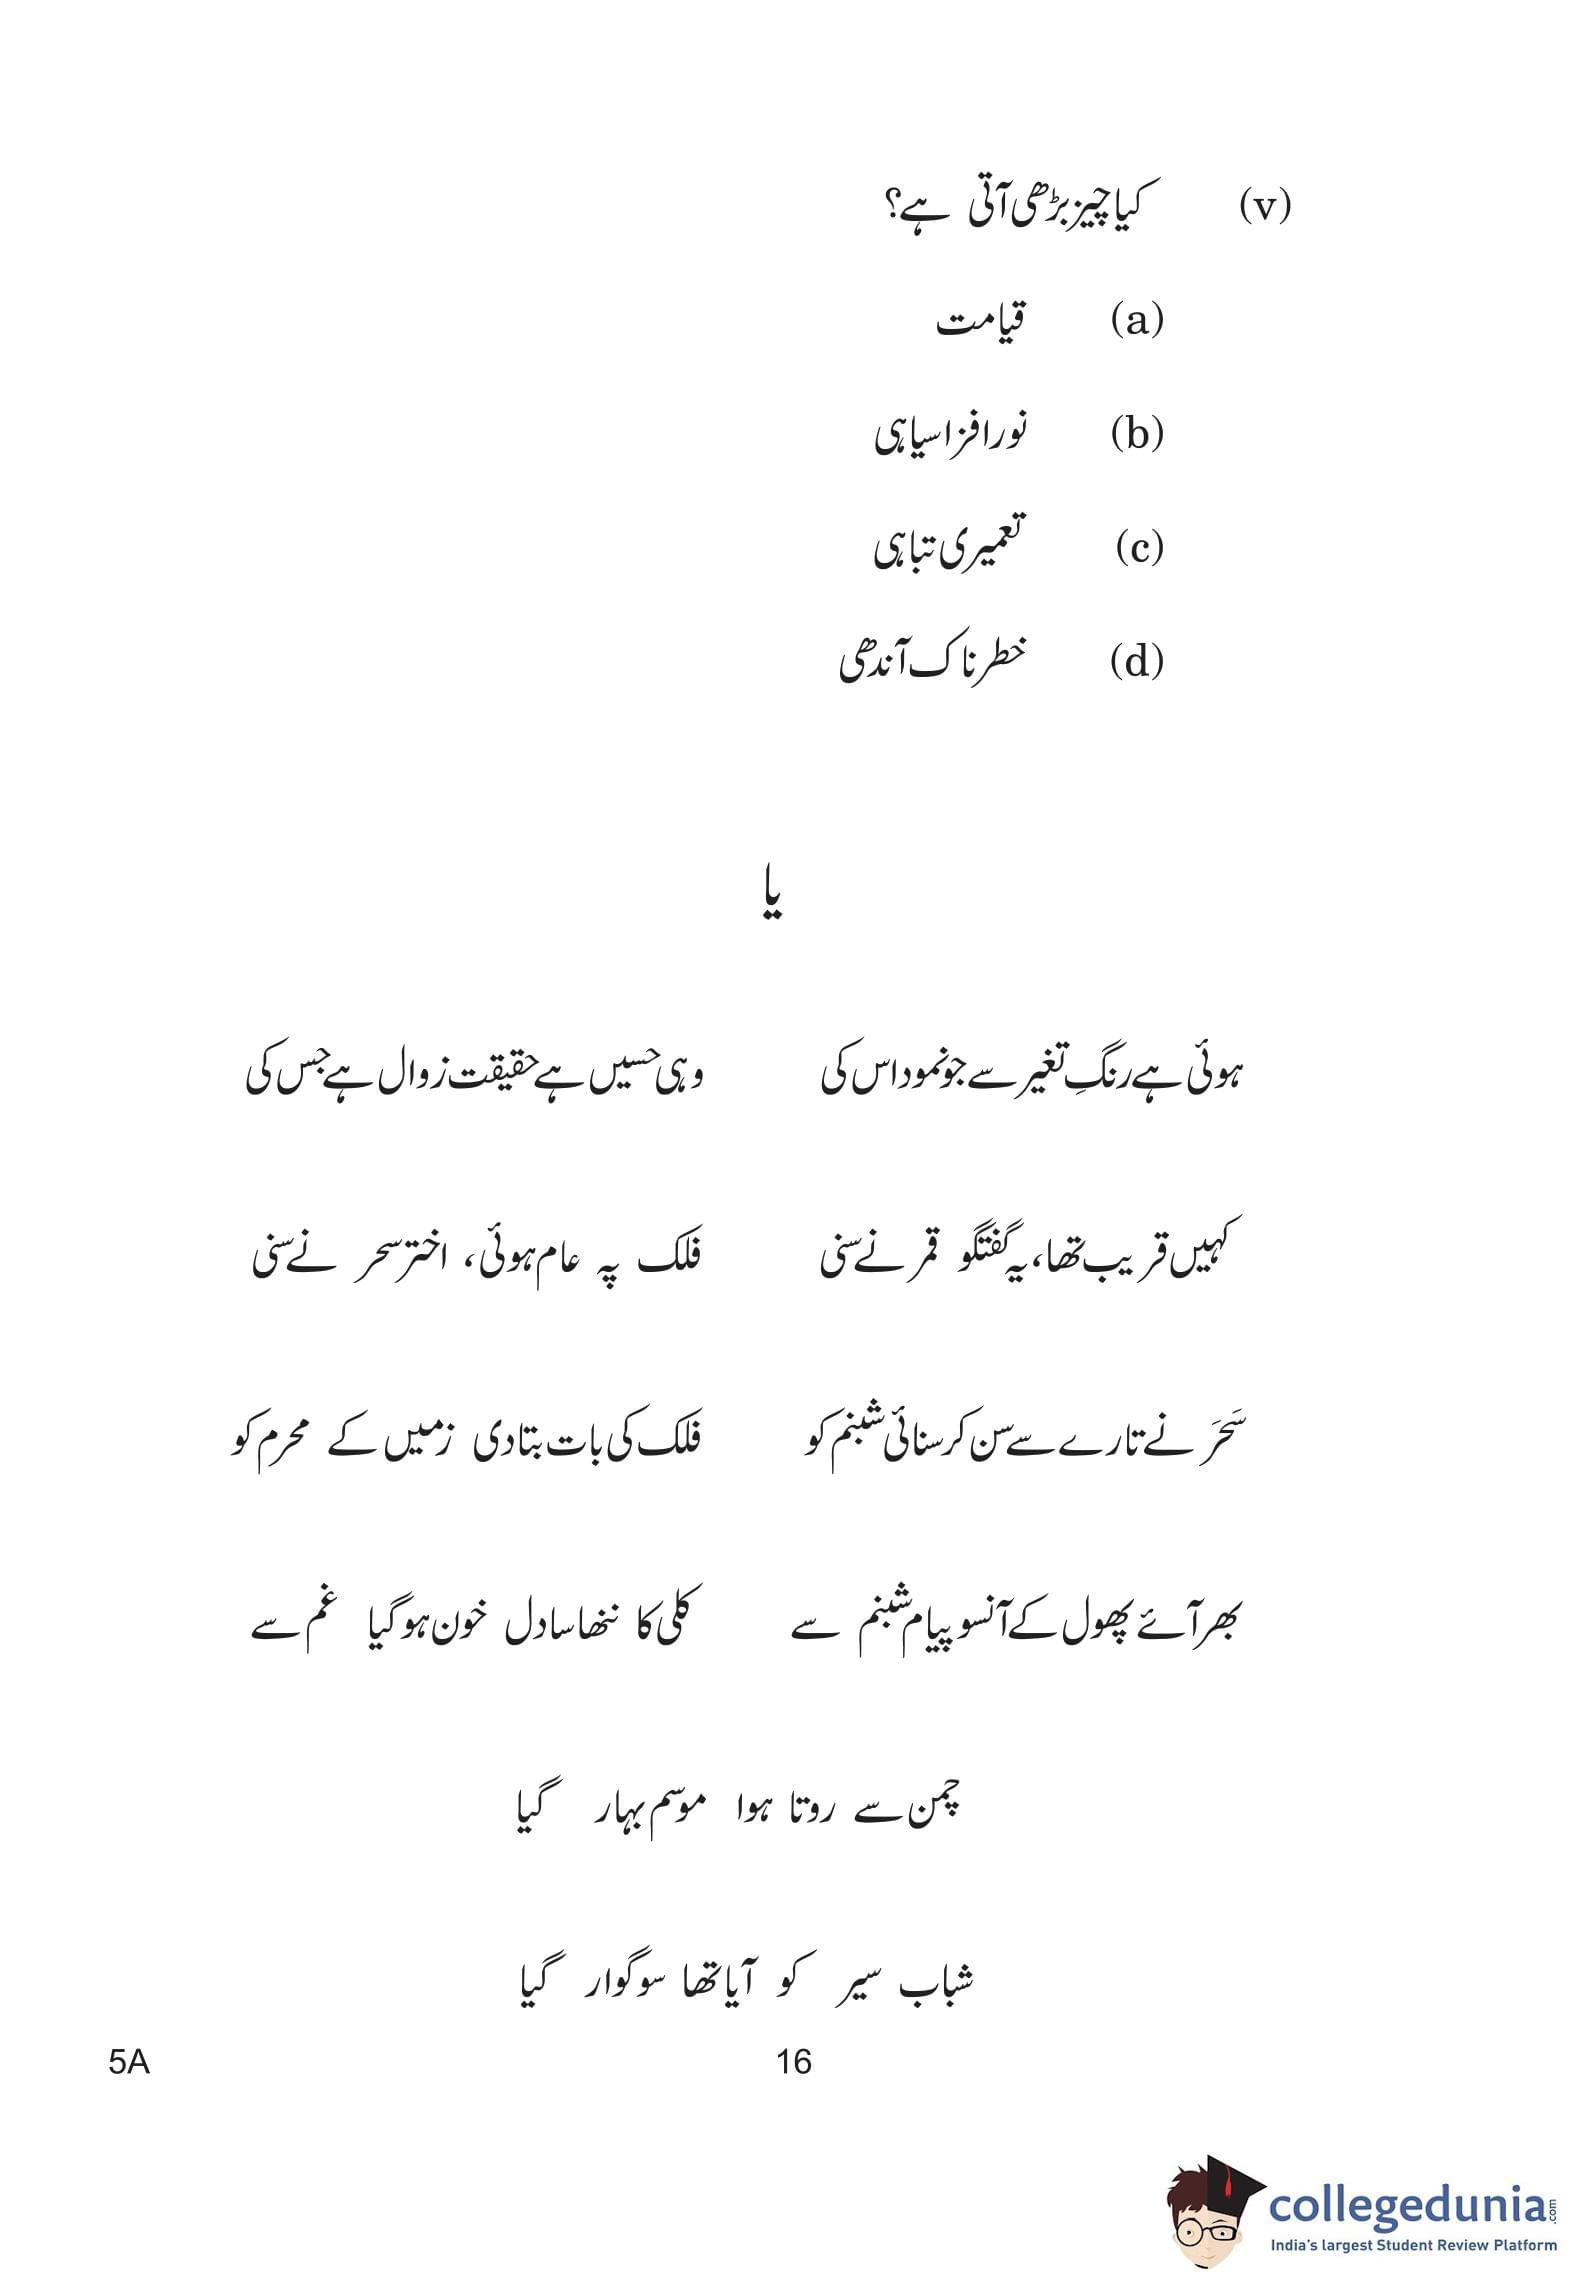 (v) کیا چیز بڑھی آتی ہے؟
(a) قیامت
(b) نور افزا سیاہی
(c) تعمیری تباہی
(d) خطرناک آندھی
یا
ہوئی ہے رنگِ تغیر سے جو نمود اس کی وہی حسیں ہے حقیقت زوال ہے جس کی
کہیں قریب تھا، یہ گفتگو قمر نے سنی فلک پہ عام ہوئی، اختر سحر نے سنی
سَحَر نے تارے سے سن کر سنائی شبنم کو فلک کی بات بتا دی زمیں کے محرم کو
بھر آئے پھول کے آنسو پیام شبنم سے کلی کا ننھا سا دل خون ہو گیا غم سے
چمن سے روتا ہوا موسم بہار گیا
شباب سیر کو آیا تھا سوگوار گیا
5A 16
collegedunia.com
India's largest Student Review Platform